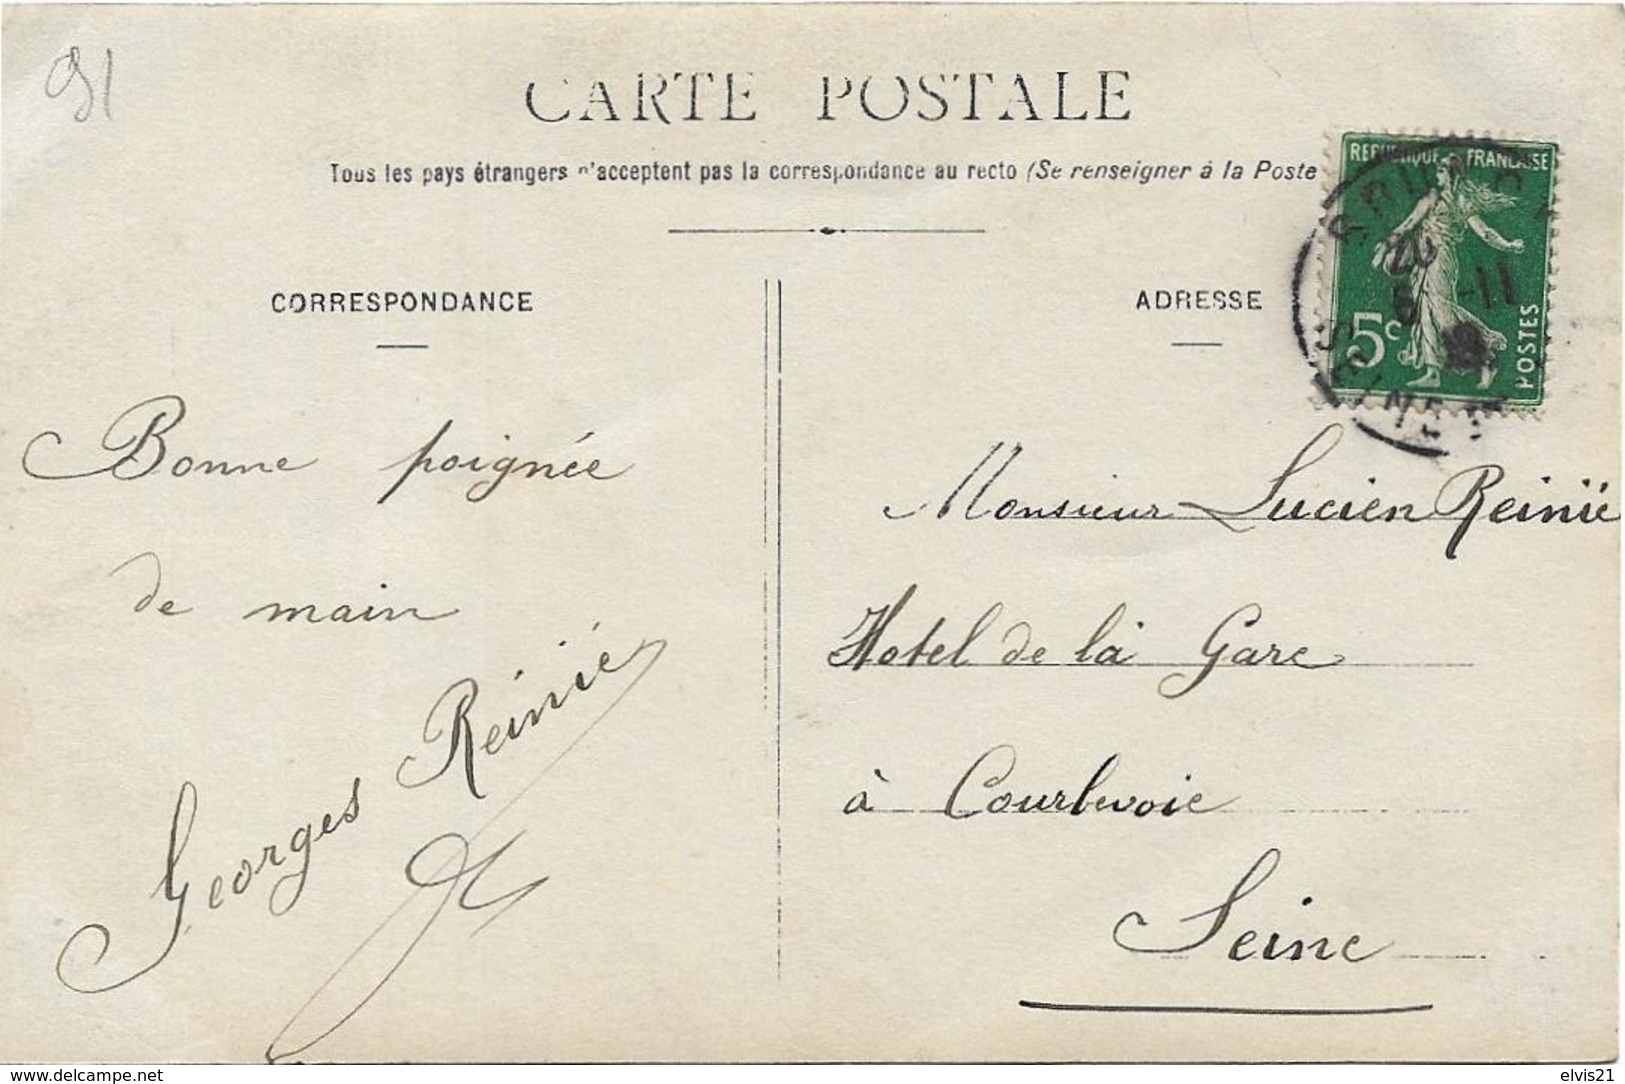 91
CARTE POSTALE
Tous les pays étrangers n'acceptent pas la correspondance au recto (Se renseigner à la Poste
REPUBLIQUE FRANÇAISE
5c
POSTES
20
6 -11
SEINE
CORRESPONDANCE
ADRESSE
Bonne poignée
de main
Georges Reinié
Monsieur Lucien Reinié
Hotel de la Gare
à Courbevoie
Seine
www.delcampe.net
elvis21